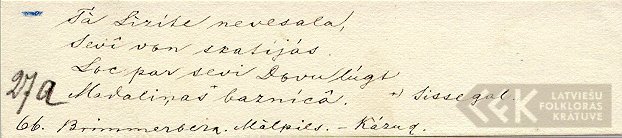 Tā Lizīte nevesala,
Sevī von szatījās.
Loc par sevi Dovu lūgt
27a
Madaliņas baznīcā. *) Sissegal.
66. Brimmerberg. Mālpils. – Kázuq.
LATVIEŠU
FOLKLORAS
KRĀTUVE
LFK